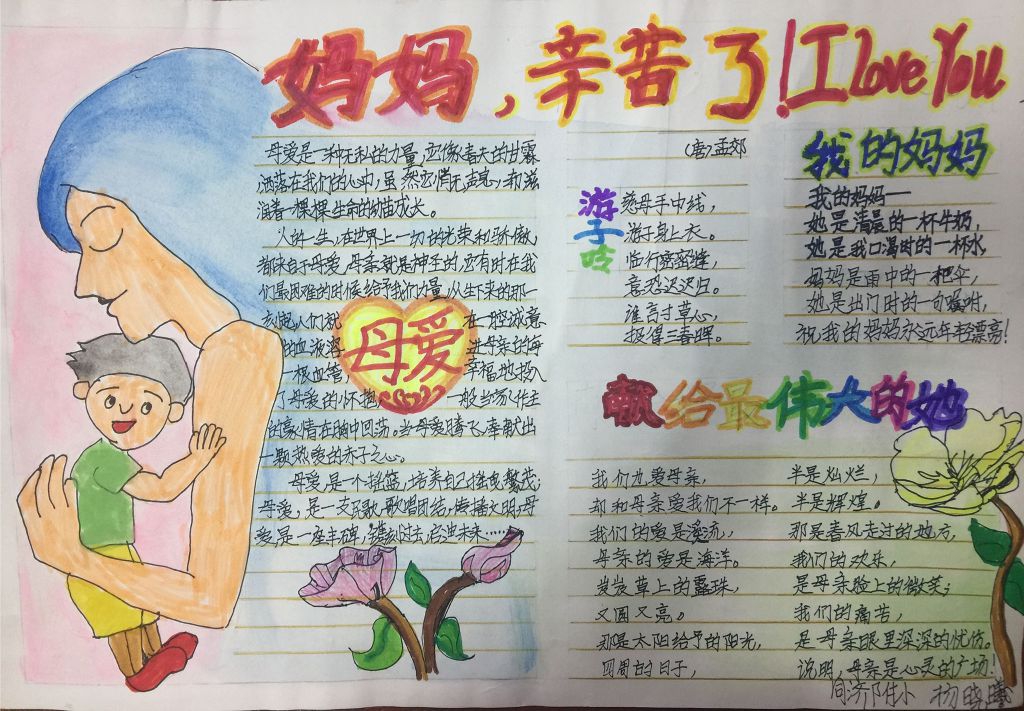 妈妈，辛苦了！I love You
母爱是一种无私的力量，它像春天的甘霖，
洒落在我们的心中，虽然它悄无声息，却滋
润着一棵棵生命的幼苗成长。
人的一生，在世界上一切的光荣和骄傲，
都来自于母爱，母亲就是神圣的，还有时在我
们最困难的时候给予我们力量，从生下来的那一
刻起人们就 在一腔诚意
的血液溶 进母亲的每
一根血管， 幸福地扬入
了母爱的怀抱 一般当家作主
的豪情在胸中回荡。当母爱腾飞奉献出
一颗热爱的赤子之心。
母爱是一个摇篮，培养自己
母爱，是一支元歌，歌唱团结，传播文明，母
爱，是一座丰碑，镌刻过去，启迪未来……
母爱
(唐)孟郊
游子吟
慈母手中线，
游子身上衣。
临行密密缝，
意恐迟迟归。
谁言寸草心，
报得三春晖。
我的妈妈
我的妈妈—
她是清晨的一杯牛奶，
她是我口渴时的一杯水，
妈妈是雨中的一把伞，
她是出门时的一句嘱咐，
祝我的妈妈永远年轻漂亮！
献给最伟大的她
我们也爱母亲，
却和母亲爱我们不一样。
我们的爱是溪流，
母亲的爱是海洋。
岌岌草上的露珠，
又圆又亮。
那是太阳给予的阳光，
四周的日子，
半是灿烂，
半是辉煌。
那是春风走过的地方，
我们的欢乐，
是母亲脸上的微笑；
我们的痛苦，
是母亲眼里深深的忧伤。
说明，母亲是心灵的广场！
同济附小 杨晓曦